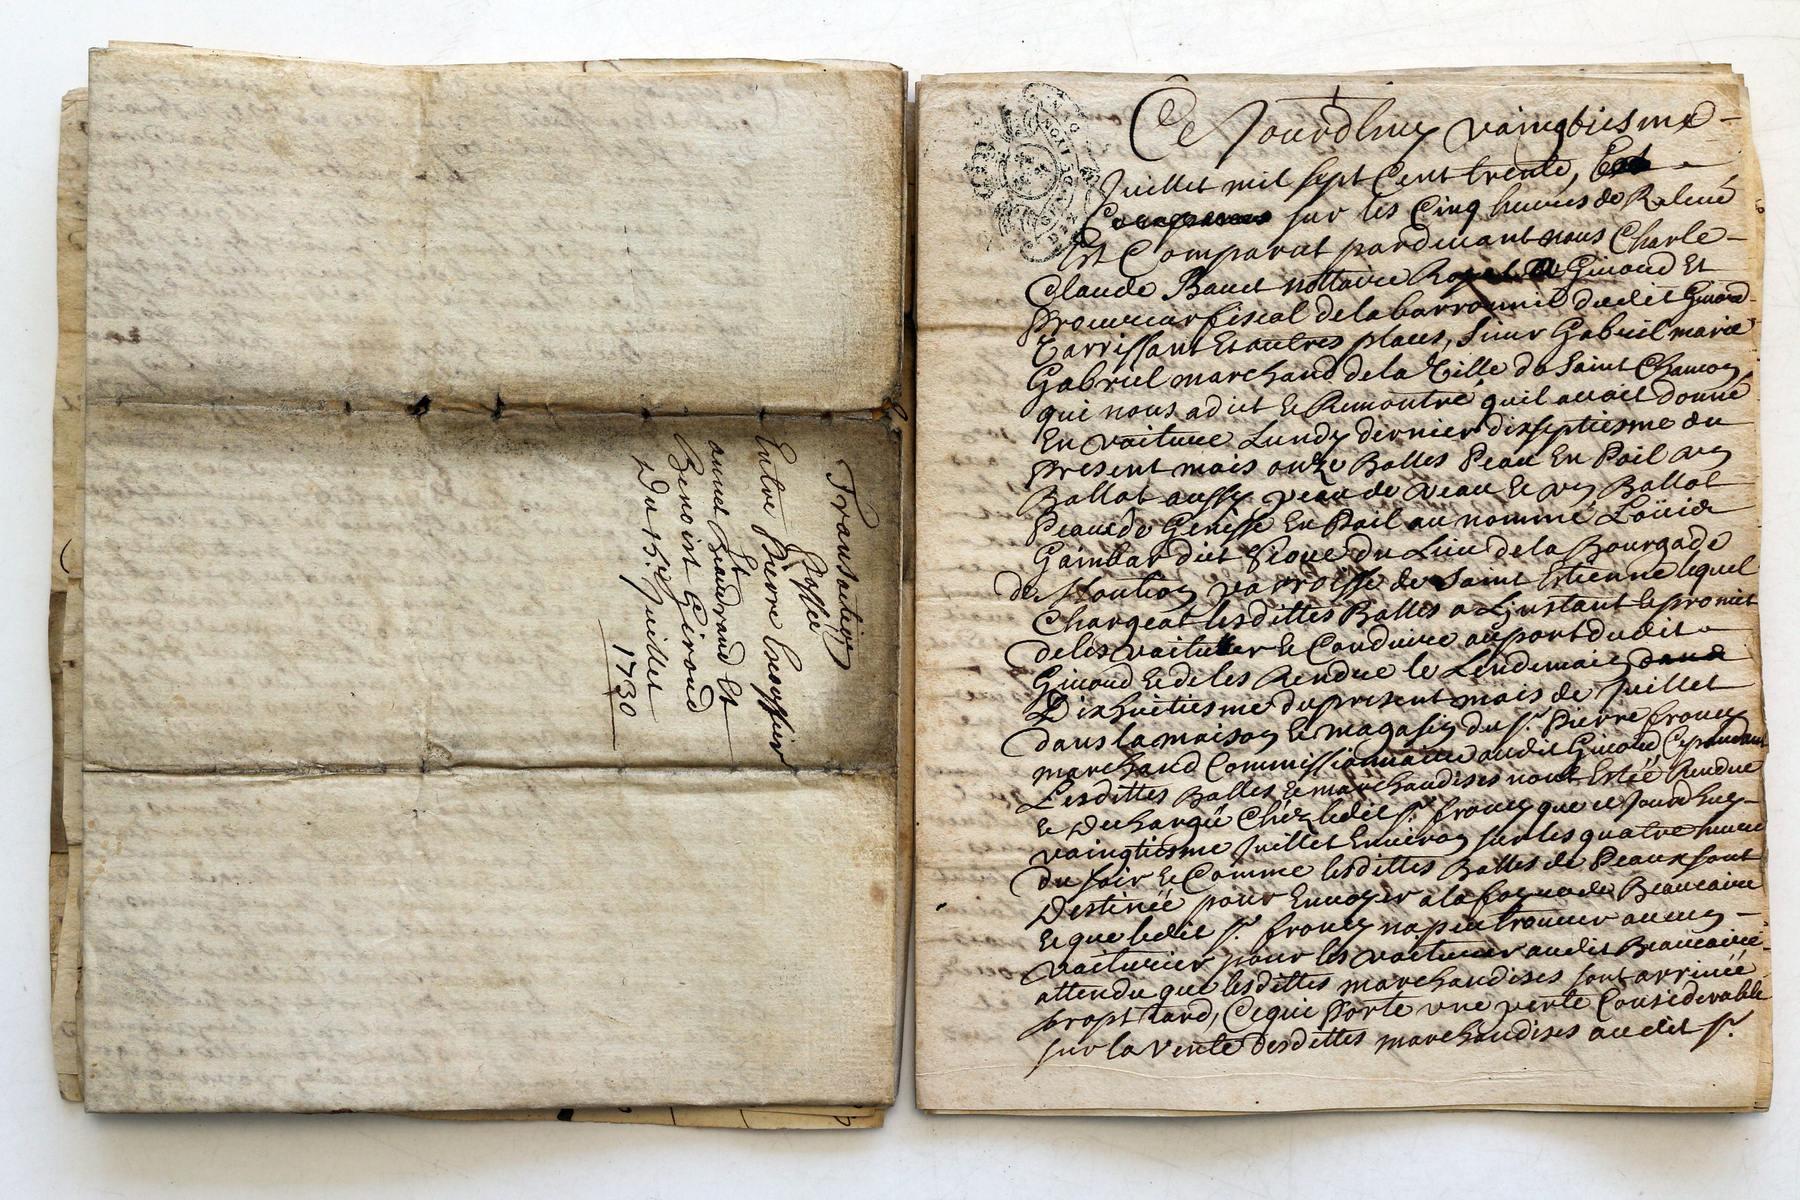 Transaction
Passée
Entre Pierre Escoffier
annet Beaudrand Et
Benoist Giroud
Du 15e Juillet
1730
Ce Jourdhuy vaingtiesme
Juillet mil sept Cent trente,
sur les Cinq heures de Relevé
Est Comparut pardevant nous Charle
Claude Bauet nottaire Royal Givord Et
procureur fiscal de la barronnie dudit Givord
Et autres places, Sieur Gabriel marie
Gabriel marchand de la Ville de Saint Chamon,
qui nous a dict & Remontré quil avoit donné
En voiture Lundy dernier dixseptiesme du
present mois onze Balles Peau En Poil un
Ballot aussy peau de veau & un Ballot
Peau de Genisse En Poil au nommé Loüis
dict du Lieu de la Bourgade
de parroisse de Saint Estienne lequel
Chargeat lesdittes Balles a Linstant & promit
de les voiturer & Conduire au port dudit
Givord & de les Rendre le Lendemain
Dixhuitiesme du present mois de Juillet
dans la maison & magasin du Sr. Pierre
marchand Commissionnaire audit Givord Cependant
Lesdittes Balles & marchandises nont Estéé Rendue
& Dechargé Chéz ledit Sr. que ce Jourdhuy
vaingtiesme Juillet Environ sur les quatre heures
du soir & Comme lesdittes Balles de Peaux sont
Destinéé pour Envoyer a la foire de Beaucaire
& que ledit Sr. na peu trouver aucun
voiturier pour les voiturer audit Beaucaire
attendu que lesdittes marchandises sont arrivéé
tard, Ce qui Porte une perte Considerable
sur la vente desdittes marchandises audit Sr.